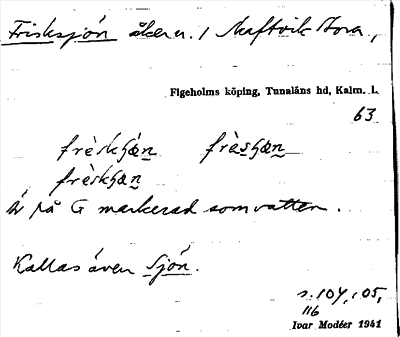 Frisksjön åker n. / Saftvik Stora,
Figeholms köping, Tunaläns hd, Kalm. l.
63
frèskʃǽn frèsʃæn
frèskʃæn
Är på G markerad som vatten.
Kallas även Sjön.
s. 104, 105,
116
Ivar Modéer 1941